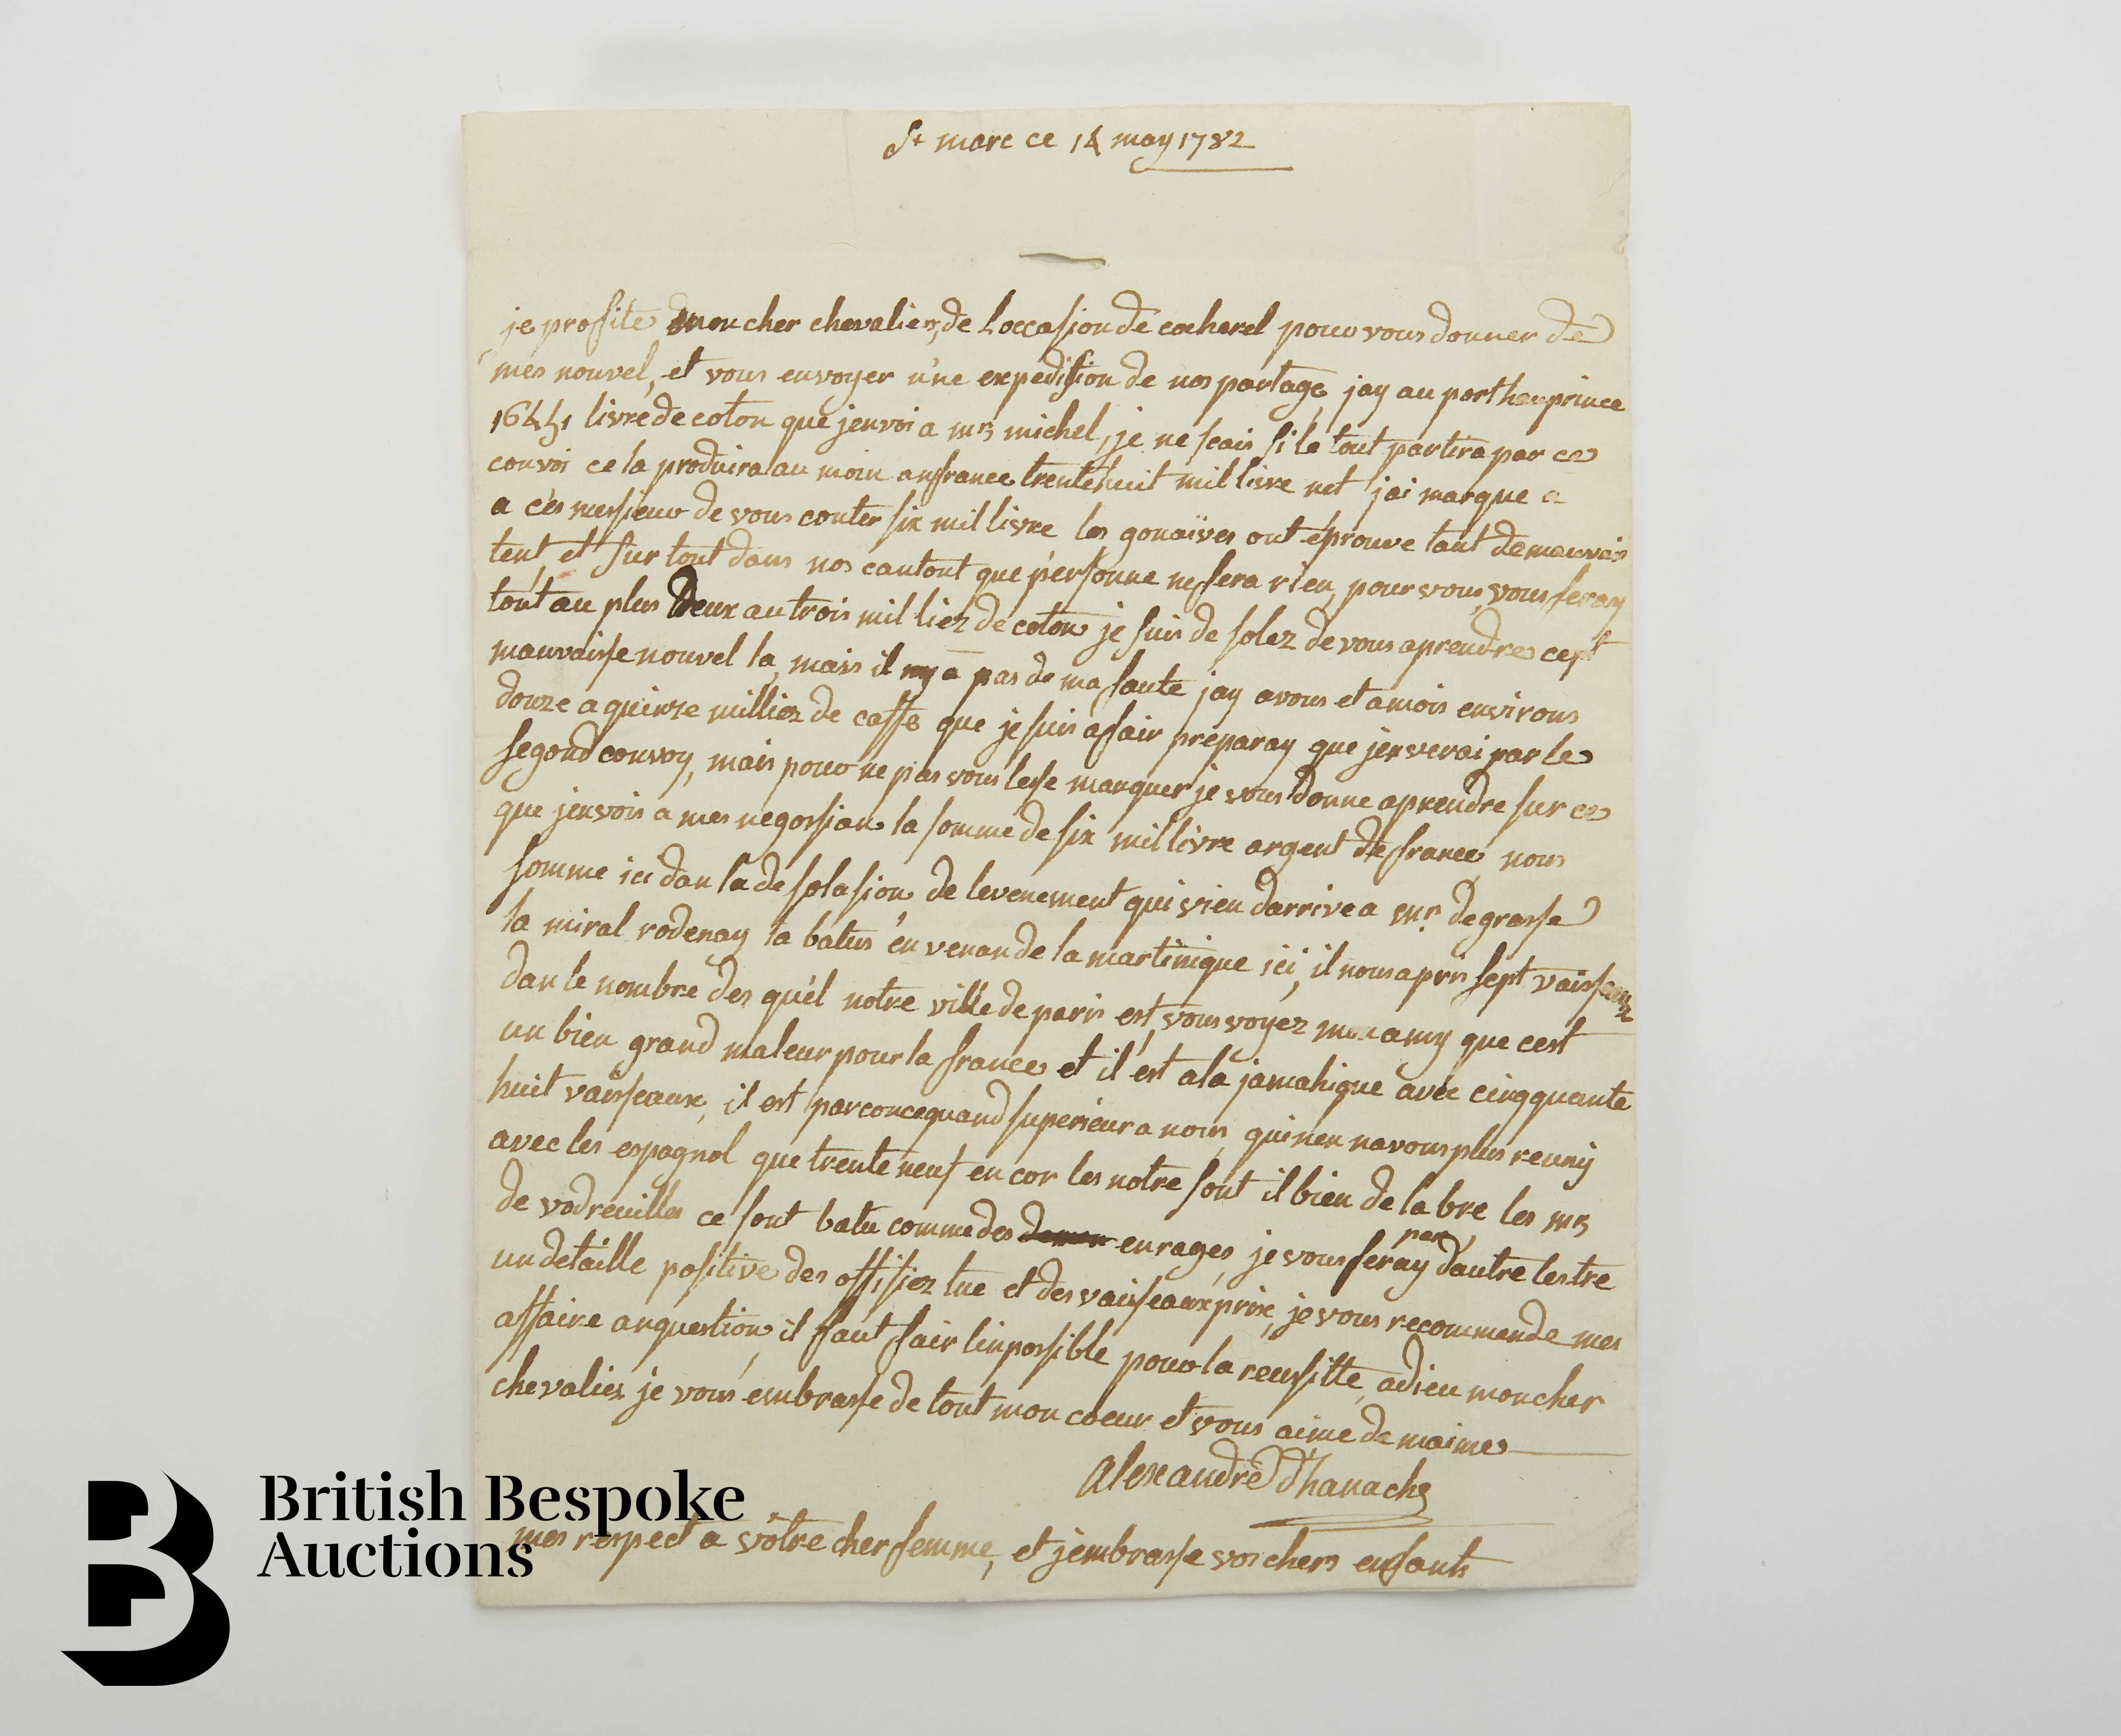 St marc ce 14 may 1782
je proffite mon cher chevalier, de loccasion de cocherel pour vous donner de
mes nouvel, et vous envoyer une expedition de nos partage, jay au porthauprince
livre de coton que jenvoi a mrs michel, je ne scais si le tout partira par ce
convoi cela produira au moin anfrance trentehuit mil livre net jai marque a
a ces messieur de vous conter six mil livre les gonaïves ont éprouve tant demauvais
tent, et sur tout dans nos cantont que personne nefera rien, pour vous, vous feray
tout au plus deux au trois mil liez de coton je suis de solez de vous aprendre
mauvaisse nouvel la, mais il ny a pas de ma faute jay avous et amois environs
douze a quinze milliez de caffe que je suis affair préparay que jenverai par le
segond convoy, mais pour ne pas vous lesse manquer je vous donne aprendre sur ce
que jenvois a mes negossians la somme de six mil livre argent de france, nous
somme ici dan la de solasion de levenement qui vien darrive a mr. degrasse
la miral rodenay la batus en venan de la martinique ici, il nous a pris sept vaisseaux
dan le nombre des quél notre ville de paris est, vous voyez mon amy que cest
un bien grand maleur pour la france et il est ala jamahique avec cinqquante
huit vaisseaux, il est parconcequand superieur a nous, quinen navons plus reuny
avec les espagnol que trente neuf en cor les notre sont il bien de la bre les mrs
de vodreuilles ce sont batu comme des enrages, je vous feray par dautre lestre
un detaille positive des offisiez tue et des vaisseaux prix, je vous recommende mes
affaire anquestion, il faut fair linpossible pour la reussitte, adieu mon cher
chevalier je vous embrasse de tout mon coeur et vous aime de maime
Alexandre d'hanache
mes respect a vôtre cher femme, et jembrasse vos chers enfants
British Bespoke
Auctions